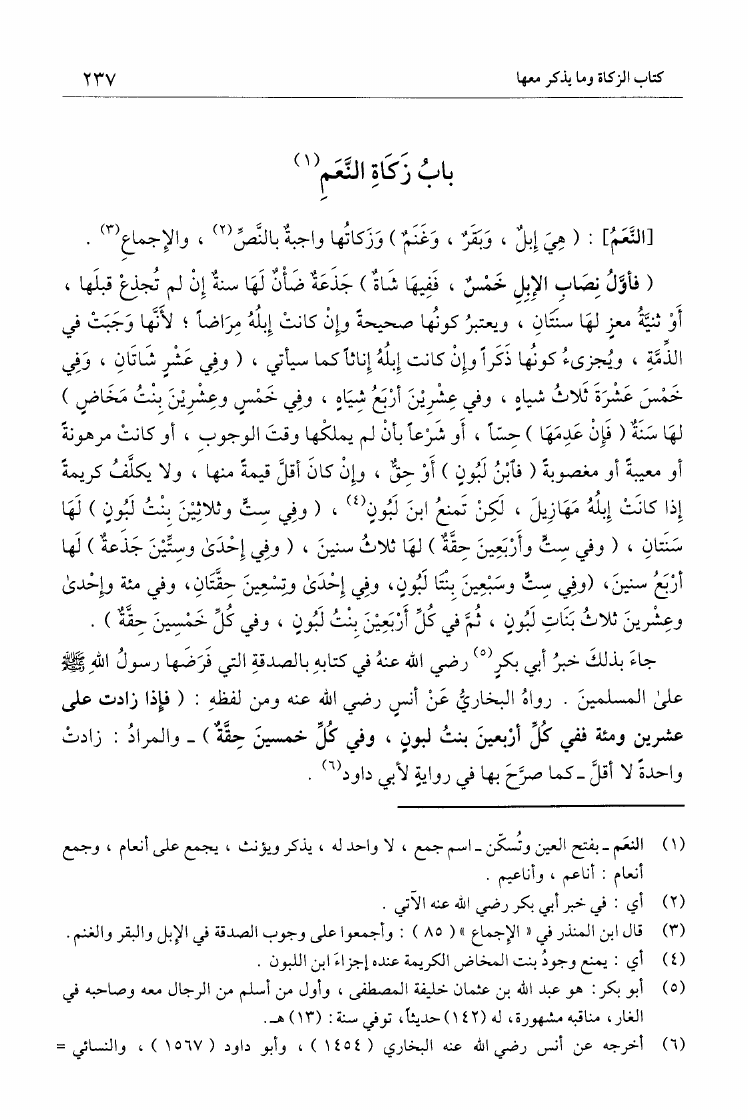 كتاب الزكاة وما يذكر معها ٢٣٧
بابُ زَكَاةِ النَّعَمِ(١)
[النَّعَمُ] : ( هِيَ إِبلٌ ، وَبَقَرٌ ، وَغَنَمٌ ) وَزَكاتُها واجبةٌ بالنَّصِّ(٢) ، والإجماعِ(٣) .
( فأوَّلُ نِصَابِ الإِبلِ خَمْسٌ ، فَفِيهَا شَاةٌ ) جَذَعَةٌ ضَأْنٌ لَهَا سنةٌ إنْ لم تُجذعْ قبلَها ،
أَوْ ثنيَّةُ معزٍ لهَا سنتَانِ ، ويعتبرُ كونُها صحيحةً وإن كانتْ إبلُهُ مِرَاضاً ؛ لأنَّها وَجَبَتْ في
الذِّمَّةِ ، ويُجزىءُ كونُها ذَكَراً وإنْ كانت إبلُهُ إناثاً كما سيأتي ، ( وفي عَشْرٍ شَاتَانِ ، وَفِي
خَمْسَ عَشْرَةَ ثَلاثُ شياهٍ ، وفي عِشْرِيْنَ أرْبَعُ شِيَاهٍ ، وفِي خَمْسٍ وعِشْرِيْنَ بِنْتُ مَخَاضٍ )
لهَا سَنَةٌ ( فَإِنْ عَدِمَهَا ) حِسّاً ، أو شَرْعاً بأنْ لم يملكْها وقتَ الوجوبِ ، أو كانتْ مرهونةً
أو معيبةً أو مغصوبةً ( فأبْنُ لَبُونٍ ) أوْ حِقٌّ ، وإنْ كانَ أقلَّ قيمةً منها ، ولا يكلَّفُ كريمةً
إذا كانَتْ إِبلُهُ مَهَازِيلَ ، لَكِنْ تَمنعُ ابنَ لَبُونٍ(٤) ، ( وفي سِتٍّ وثلاثِيْنَ بِنْتُ لَبُونٍ ) لَهَا
سَنَتانِ ، ( وفي سِتٍّ وأَرْبَعِينَ حِقَّةٌ ) لهَا ثلاثُ سنينَ ، ( وفي إِحْدَىٰ وسِتِّيْنَ جَذَعةٌ ) لَها
أرْبَعُ سنينَ، (وفِي سِتٍّ وسَبْعِينَ بِنْتَا لَبُونٍ، وفِي إحْدَىٰ وتِسْعِينَ حِقَّتَانِ، وفي مئة وإحْدىٰ
وعِشْرينَ ثلاثُ بَنَاتِ لَبُونٍ ، ثُمَّ في كُلِّ أرْبَعِيْنَ بِنْتُ لَبُونٍ ، وفي كُلِّ خَمْسِينَ حِقَّةٌ ) .
جاءَ بذلكَ خبرُ أبي بكرٍ(٥) رضي الله عنهُ في كتابهِ بالصدقةِ التي فَرَضَها رسولُ اللهِ ﷺ
علىٰ المسلمينَ . رواهُ البخاريُّ عَنْ أنسٍ رضي الله عنه ومن لفظهِ : ( فإذا زادت على
عشرين ومئة ففي كُلِّ أرْبعينَ بنتُ لبونٍ ، وفي كُلِّ خمسينَ حِقَّةٌ ) ـ والمرادُ : زادتْ
واحدةً لا أقلَّ ـ كما صرَّحَ بها في روايةٍ لأبي داود(٦) .
(١) النعَم ـ بفتح العين وتُسكّن ـ اسم جمع ، لا واحد له ، يذكر ويؤنث ، يجمع على أنعام ، وجمع
أنعام : أناعم ، وأناعيم .
(٢) أي : في خبر أبي بكر رضي الله عنه الآتي .
(٣) قال ابن المنذر في « الإجماع » ( ٨٥ ) : وأجمعوا على وجوب الصدقة في الإبل والبقر والغنم.
(٤) أي : يمنع وجودُ بنت المخاض الكريمة عنده إجزاءَ ابن اللبون .
(٥) أبو بكر: هو عبد الله بن عثمان خليفة المصطفى ، وأول من أسلم من الرجال معه وصاحبه في
الغار، مناقبه مشهورة، له (١٤٢) حديثاً، توفي سنة: (١٣) هـ.
(٦) أخرجه عن أنس رضي الله عنه البخاري ( ١٤٥٤ ) ، وأبو داود ( ١٥٦٧ ) ، والنسائي =